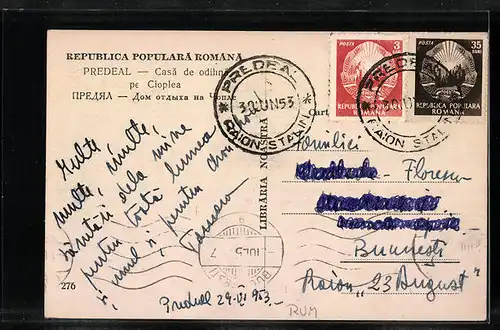 REPUBLICA POPULARĂ ROMÂNĂ
PREDEAL — Casă de odihnă
pe Cioplea
ПРЕДЯЛ — Дом отдыха на Чопле
Multe, multe,
multe,
sănătări dela mine
pentru toată lumea
și unul și pentru
276
Predeal 29-VI 953.
LIBRĂRIA NOASTRĂ
PREDEAL
30 IUN 53
RAION STALIN
POSTA
3
REPUBLICA
POPULARA
ROMANA
POSTA
35
BANI
REPUBLICA
POPULARA
ROMANA
PREDEAL
RAION STALIN
Cart
Familiei
Florescu
București
Raion „23 August"
RUM